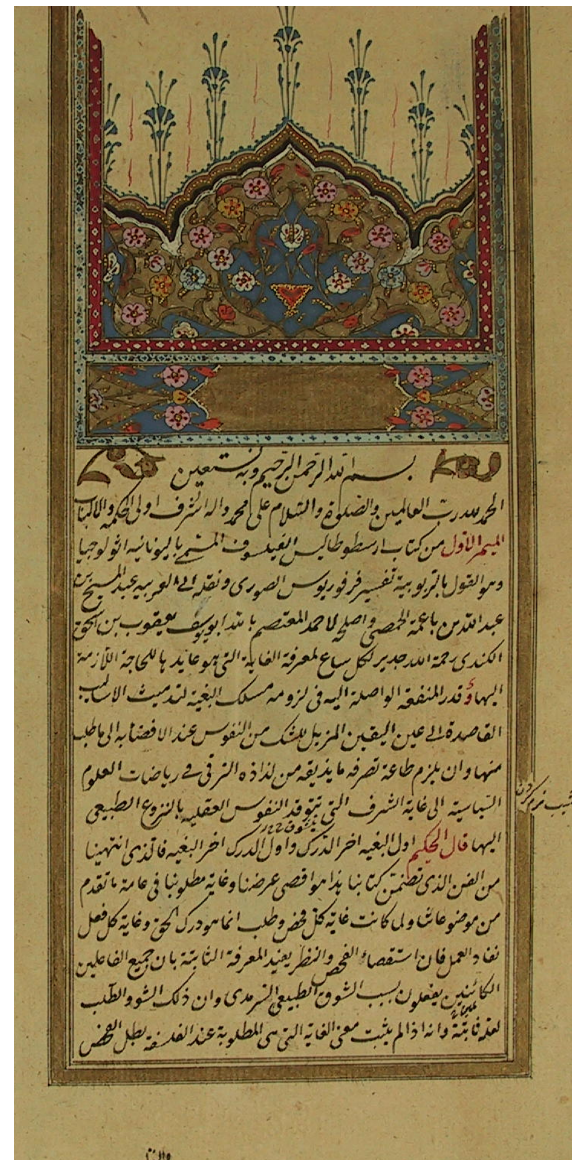 بسم الله الرحمن الرحيم وبه نستعين
الحمد لله رب العالمين والصلوة والسلام على محمد واله اشرف اولى الحكمة والالباب
الميمر الاول من كتاب ارسطوطاليس الفيلسوف المسمى باليونانيه اثولوجيا
وهو القول بالربوبية تفسير فرفوريوس الصورى ونقله الى العربيه عبد المسيح بن
عبد الله بن ناعمة الحمصى واصلحه لاحمد المعتصم بالله ابو يوسف يعقوب بن اسحق
الكندى رحمة الله جدير لكل ساع لمعرفة الغاية التى هو عايدها للحاجة اللازمة
اليها وقدر المنفعة الواصلة اليه فى لزومه مسلك البغية لتدميث الاساليب
القاصدة الى عين اليقين المزيل للشك من النفوس عند الافضا به الى ما طلب
منها وان يلزم طاعة تصرفه ما يذيقه من لذاذه الترقى فى رياضات العلوم
السياسية الى غاية الشرف التى تتوقد النفوس العقليه بالنزوع الطبيعى
اليها قال الحكيم اول البغيه اخر الدرك واول الدرك اخر البغيه فالذى انتهينا
من الفن الذى تضمن كتابنا هذا هو اقصى غرضنا وغاية مطلوبنا فى عامة ما تقدم
من موضوعاتنا ولما كانت غاية كل فحص وطلب انما هو درك الحق وغاية كل فعل
نفاد العمل فان استقصاء الفحص والنظر يفيد المعرفة الثابتة بان جميع الفاعلين
الكائنين يفعلون بسبب الشوق الطبيعى السرمدى وان ذلك الشوق والطلب
لعلة ثانية وانه اذا لم يثبت معنى الغاية التى هى المطلوبة عند الفلسفة بطل الفحص